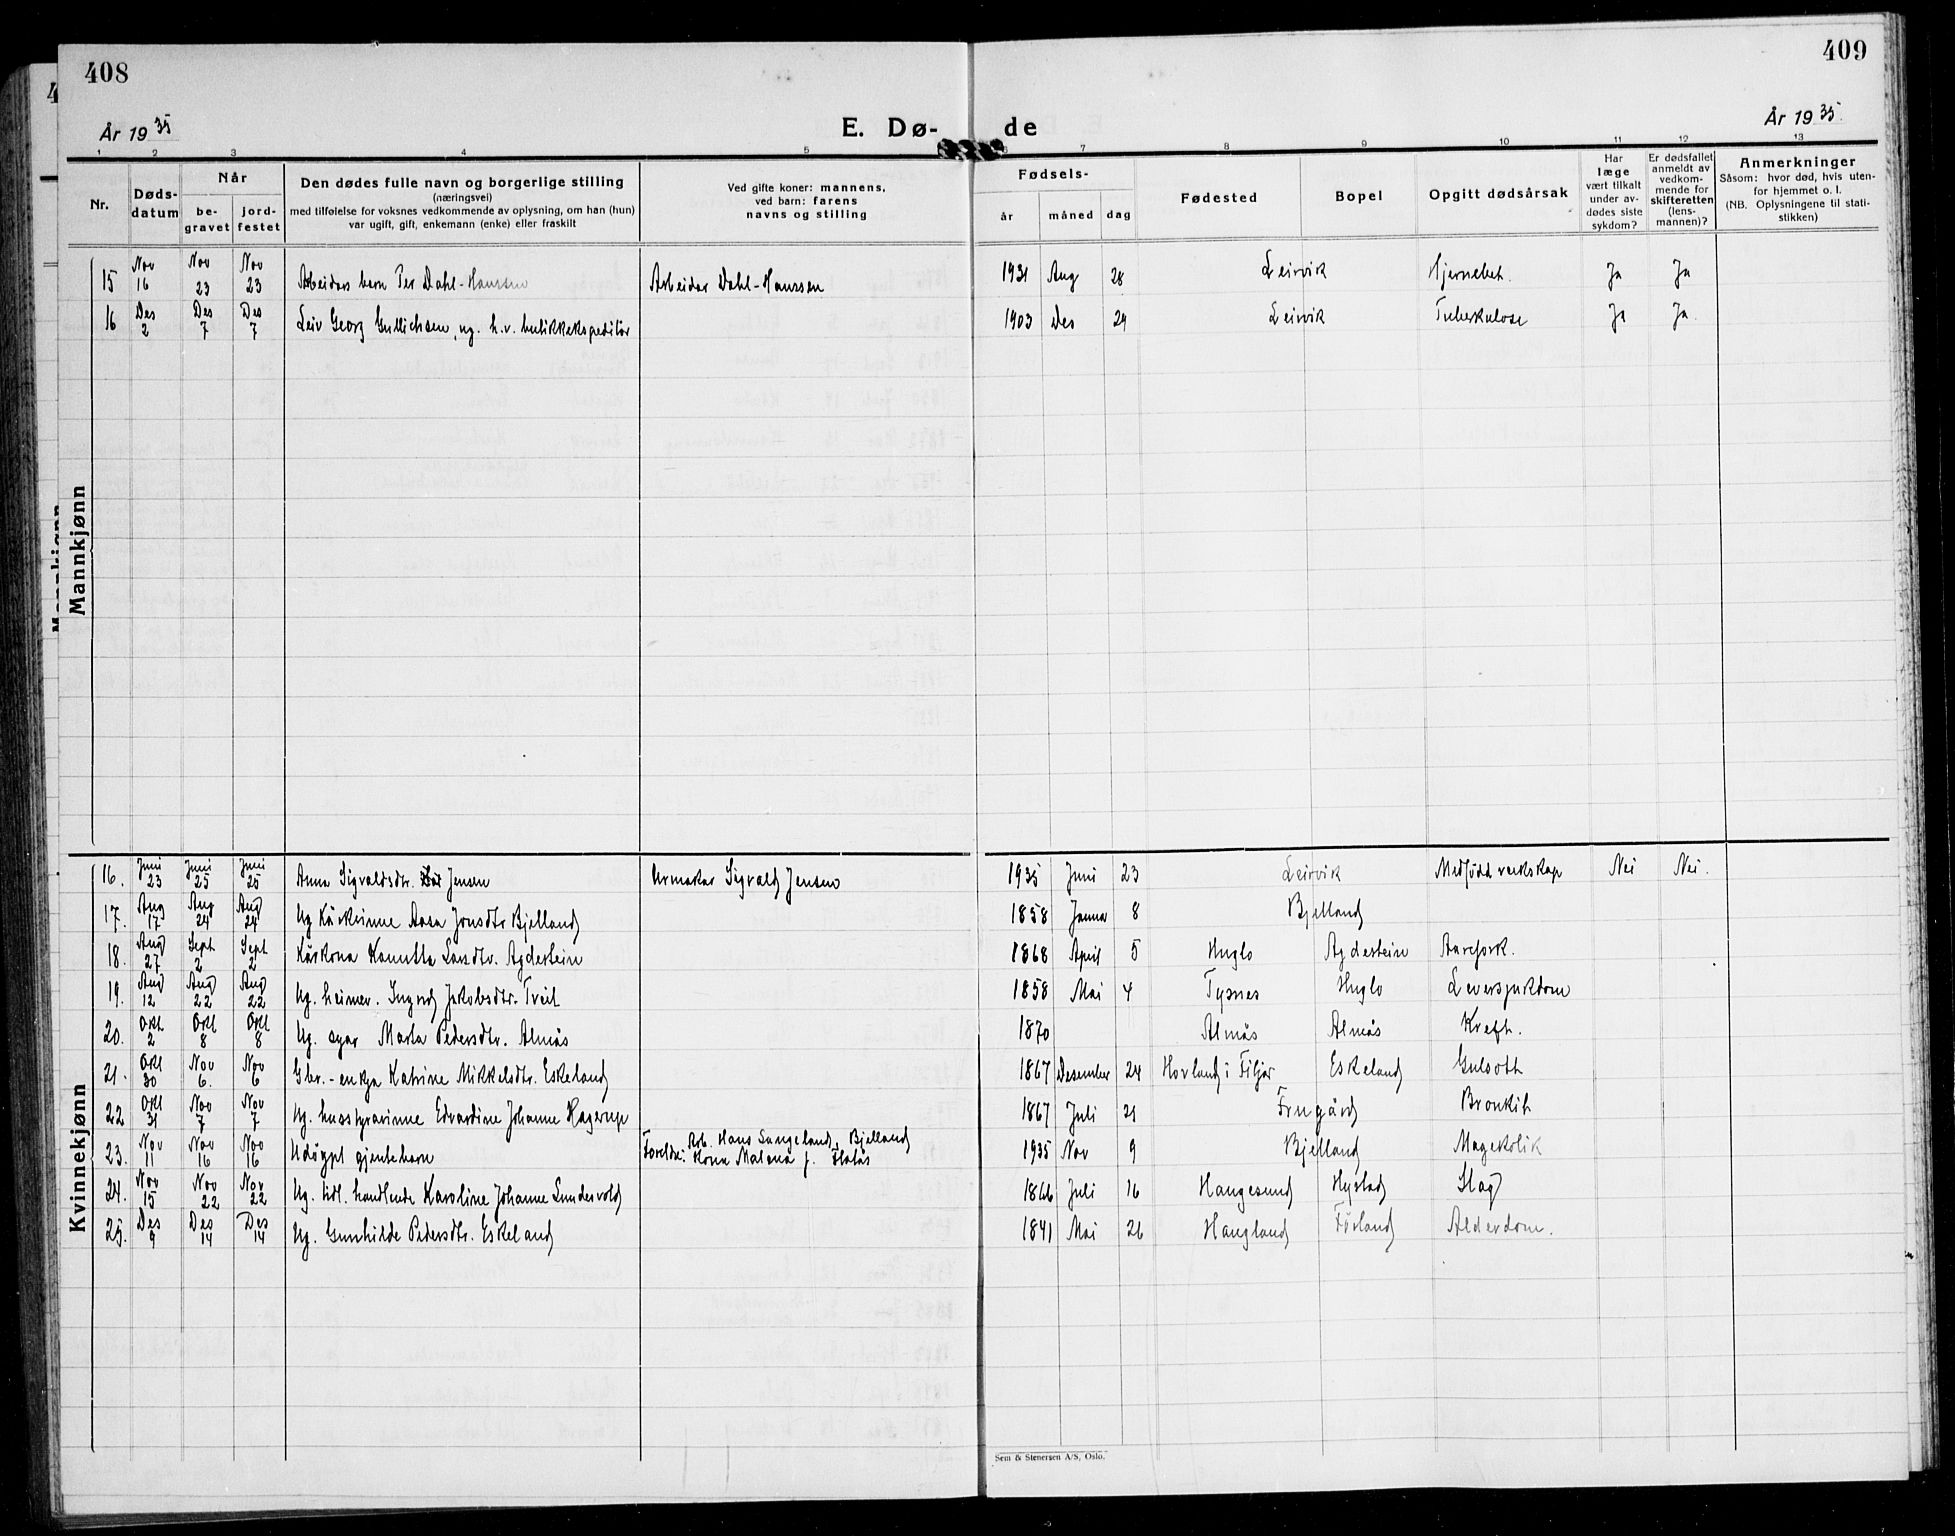 408
409
År 1935
E. Dø-
de
År 1935.
1 2 3 4 5 6 7 8 9 10 11 12 13
Nr.
Døds-
datum
Når
be-
gravet
jord-
festet
Den dødes fulle navn og borgerlige stilling
(næringsvei)
med tilføielse for voksnes vedkommende av oplysning, om han (hun)
var ugift, gift, enkemann (enke) eller fraskilt
Ved gifte koner: mannens,
ved barn: farens
navns og stilling
Fødsels-
år
måned
dag
Fødested
Bopel
Opgitt dødsårsak
Har
læge
vært tilkalt
under av-
dødes siste
sykdom?
Er dødsfallet
anmeldt av
vedkom-
mende for
skifteretten
(lens-
mannen)?
Anmerkninger
Såsom: hvor død, hvis uten-
for hjemmet o. l.
(NB. Oplysningene til stati-
stikken)
Mannkjønn
15 Nov 16 Nov 23 Nov 23 Arbeidars barn Per Dahl-Hanssen Arbeidar Dahl-Hanssen 1931 Aug 28 Leirvik Hjernebet. Ja Ja
16 Des 2 Des 7 Des 7 Leiv Georg Gullichsen, ug. h.v. butikkekspeditör 1903 Des 24 Leirvik Tuberkulose Ja Ja.
Kvinnekjønn
16. Juni 23 Juni 25 Juni 25 Anna Sigvaldsdtr. Jensen Urmakar Sigvald Jensen 1935 Juni 23 Leirvik Medfödd veikskap Nei Nei.
17. Aug 17 Aug 24 Aug 24 Ug Kårkvinne Aasa Jonsdtr Bjelland 1858 Januar 8 Bjelland
18. Aug 27 Sept 2 Sept 2 Kårkona Kanutta Larsdtr. Agdestein 1868 April 5 Huglo Agdestein Aarefork.
19. Aug 12 Aug 22 Aug 22 Ug. heimev. Ingrid Jakobsdtr. Tveit 1858 Mai 4 Tysnes Huglo Leversjukdom
20. Okt 2 Okt 8 Okt 8 Ug. syar Marta Pedersdtr. Almås 1870 Almås Almås Kreft.
21. Okt 30 Nov 6. Nov 6 Gbr.-enkja Katrine Mikkelsdtr. Eskeland 1867 Desember 24 Hovland i Fitjar Eskeland Gulsott
22 Okt 31 Nov 7 Nov 7 Ug. husstyrarinne Edvardine Johanne Hagerup 1867 Juli 21 Frugård Bronkit
23. Nov 11 Nov 16 Nov 16 Udöypt gjentebarn Foreldre: Arb. Hans Langeland, Bjelland
Kona Malena f. Flatås 1935 Nov 9 Bjelland Magekolik
24. Nov 15 Nov 22 Nov 22 Ug. tidl. handlende Karoline Johanne Lundesvold 1866 Juli 16 Haugesund Hystad Slag
25. Des 9 Des 14 Des 14 Ug. Gunhilde Pedersdtr. Eskeland 1841 Mai 26 Haugland Förland Alderdom.
Sem & Stenersen A/S, Oslo.